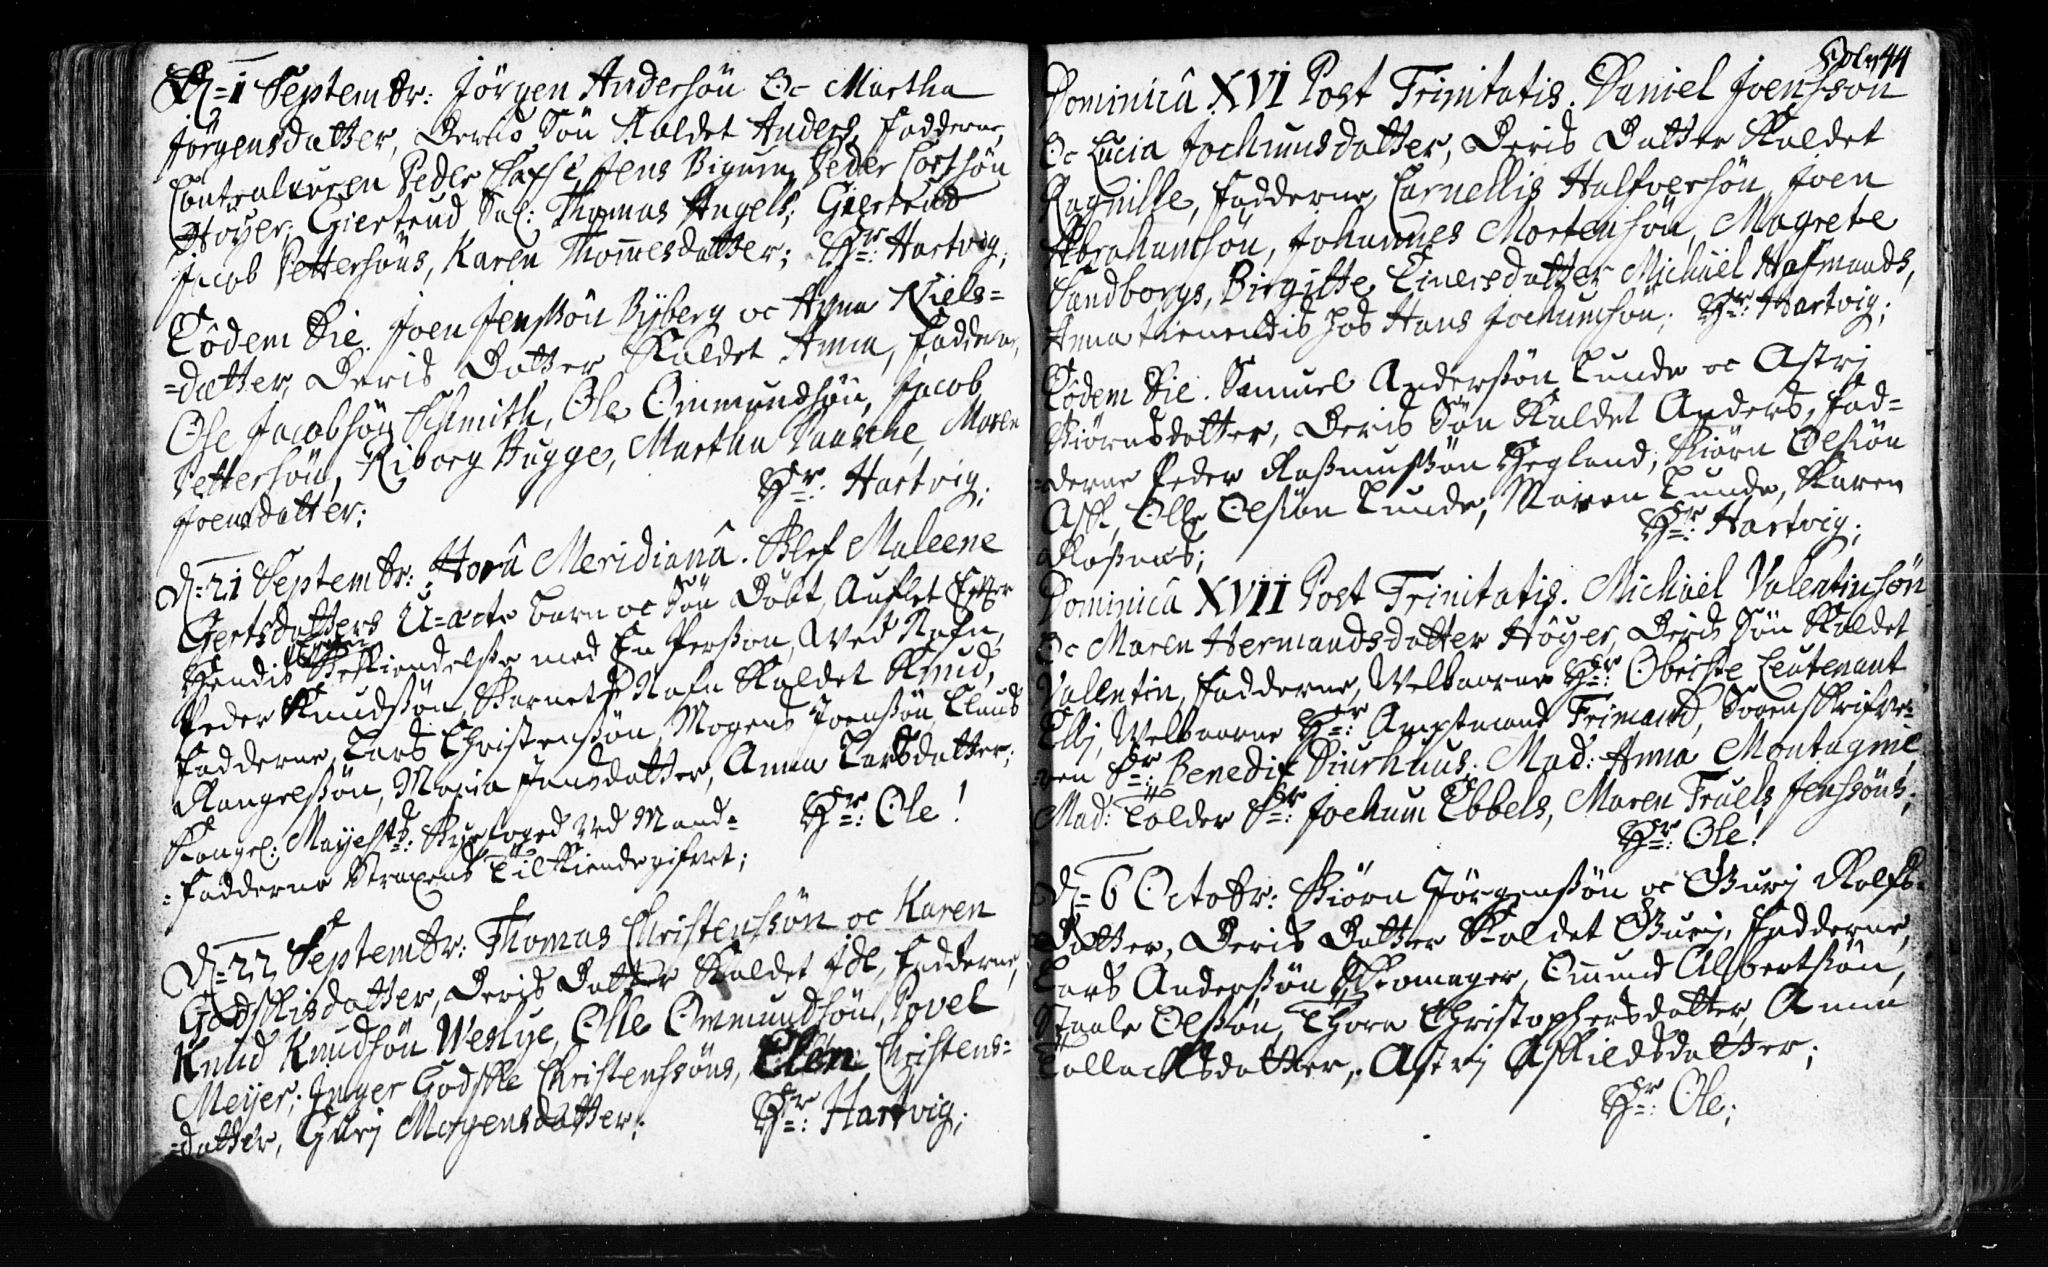 D: 1 Septembr: Jörgen Andersön Oc Martha
Jörgensdatter, Deris Sön Kaldet Anders, Fadderne,
Contralleuren Peder Jens Bigum, Peder Cortsön
Höyer, Giertrud Sal: Thomas Angels, Giertrud
Jacob Pettersöns, Karen Thommesdatter; Hr: Hartvig;
Eôdem Die. Joen Jenssön Byberg oc Anna Niels=
=datter, Deris Datter Kaldet Anna, Fadderne,
Ole Jacobsön Schmith, Ole Ommundsön, Jacob
Pettersön, Riborg Bugge, Martha Paasche, Maren
Joensdatter; Hr: Hartvig;
D: 21 Septembr: Horâ Meridianâ. Blef Maleene
Gertsdatters U=ægte barn oc Sön Döbt, Auflet Efter
Hendis Bekiendelse med En Person, Ved Nafn,
Peder Knudssön, Barnets Nafn Kaldet Knud,
Fadderne, Lars Christenssön, Mogens Joenssön, Claus
Rangelssön, Maria Jensdatter, Anna Larsdatter;
Kongel: Mayestts: Byefoged Ved Mand= Hr: Ole!
=Fadderne Straxens Tilkiendegifvet;
D: 22 Septembr: Thomas Christenssön oc Karen
Godskisdatter, Deris Datter Kaldet Idel, Fadderne,
Knud Knudsön Weslye, Olle Ommundsön, Povel
Meyer, Inger Godske Christenssöns, Elen Christens=
=datter, Gurj Mogensdatter; Hr: Hartvig;
Fol: 44
Dominicâ XVI Post Trinitatis. Daniel Joenssön
Oc Lucia Jochumsdatter, Deris Datter Kaldet
Ragnille, Fadderne, Carnellis Halfversön, Joen
Abrahamsön, Johannes Mortensön, Magrete
Sandborgs, Birgitte Einersdatter Michael Hafmands,
Anna tienendis hos Hans Jochumsön; Hr: Hartvig;
Eôdem Die. Samuel Anderssön Lunde oc Astrj
Biörnsdatter, Deris Sön Kaldet Anders, Fad=
=derne Peder Rasmussön Hegland, Biörn Olssön
Ask, Olle Olssön Lunde, Maren Lunde, Karen
Rasmus; Hr: Hartvig;
Dominicâ XVII Post Trinitatis. Michael Valentinsön
Oc Maren Hermandsdatter Höyer, Deris Sön Kaldet
Valentin, Fadderne, Welbaarne Hr: Oberste Leutenant
Welbaarne Hr: Amptmand Trimand, Sorenskrifve=
=ren Sr: Benedix Diurhuus, Mad: Anna Montagnie,
Mad: Tolder Sr: Jochum Ebbels, Maren Truels Jenssöns;
Hr: Ole!
D: 6 Octobr: Biörn Jörgenssön oc Gurj Rolfs=
Datter, Deris Datter Kaldet Gurj, Fadderne,
Lars Anderssön Skomager, Omund Albertssön,
Staale Olssön, Thora Christophersdatter, Anna
Tollacksdatter, Astrj Askieldsdatter;
Hr: Ole;